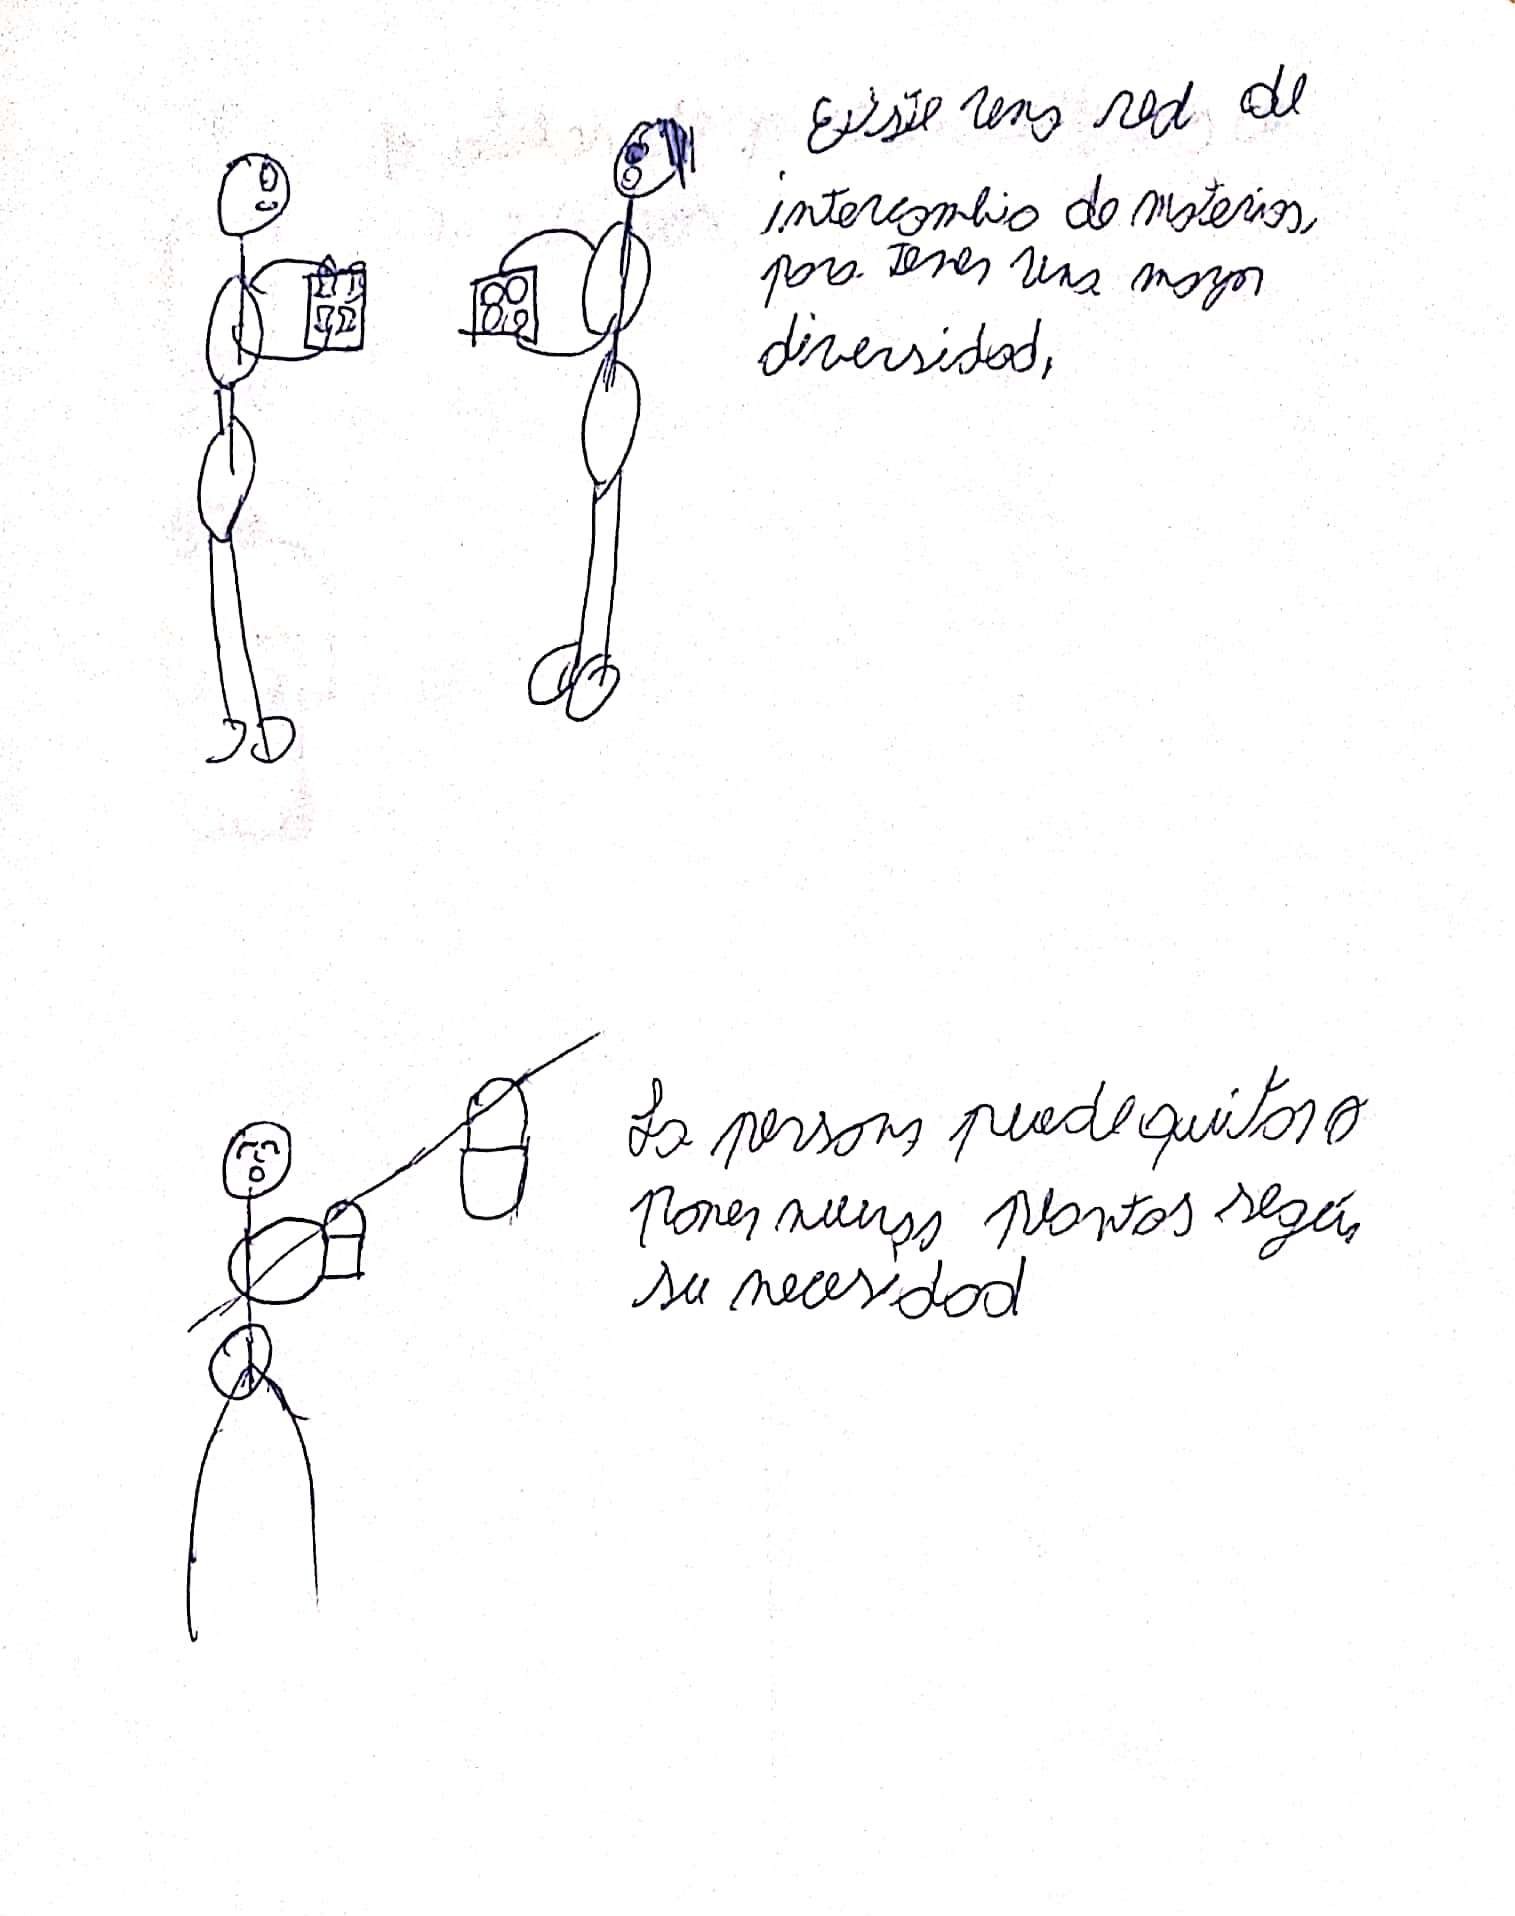 Existe una red de
intercambio de materias,
para tener una mayor
diversidad,
La persona puede quitar o
poner nuevas plantas según
su necesidad